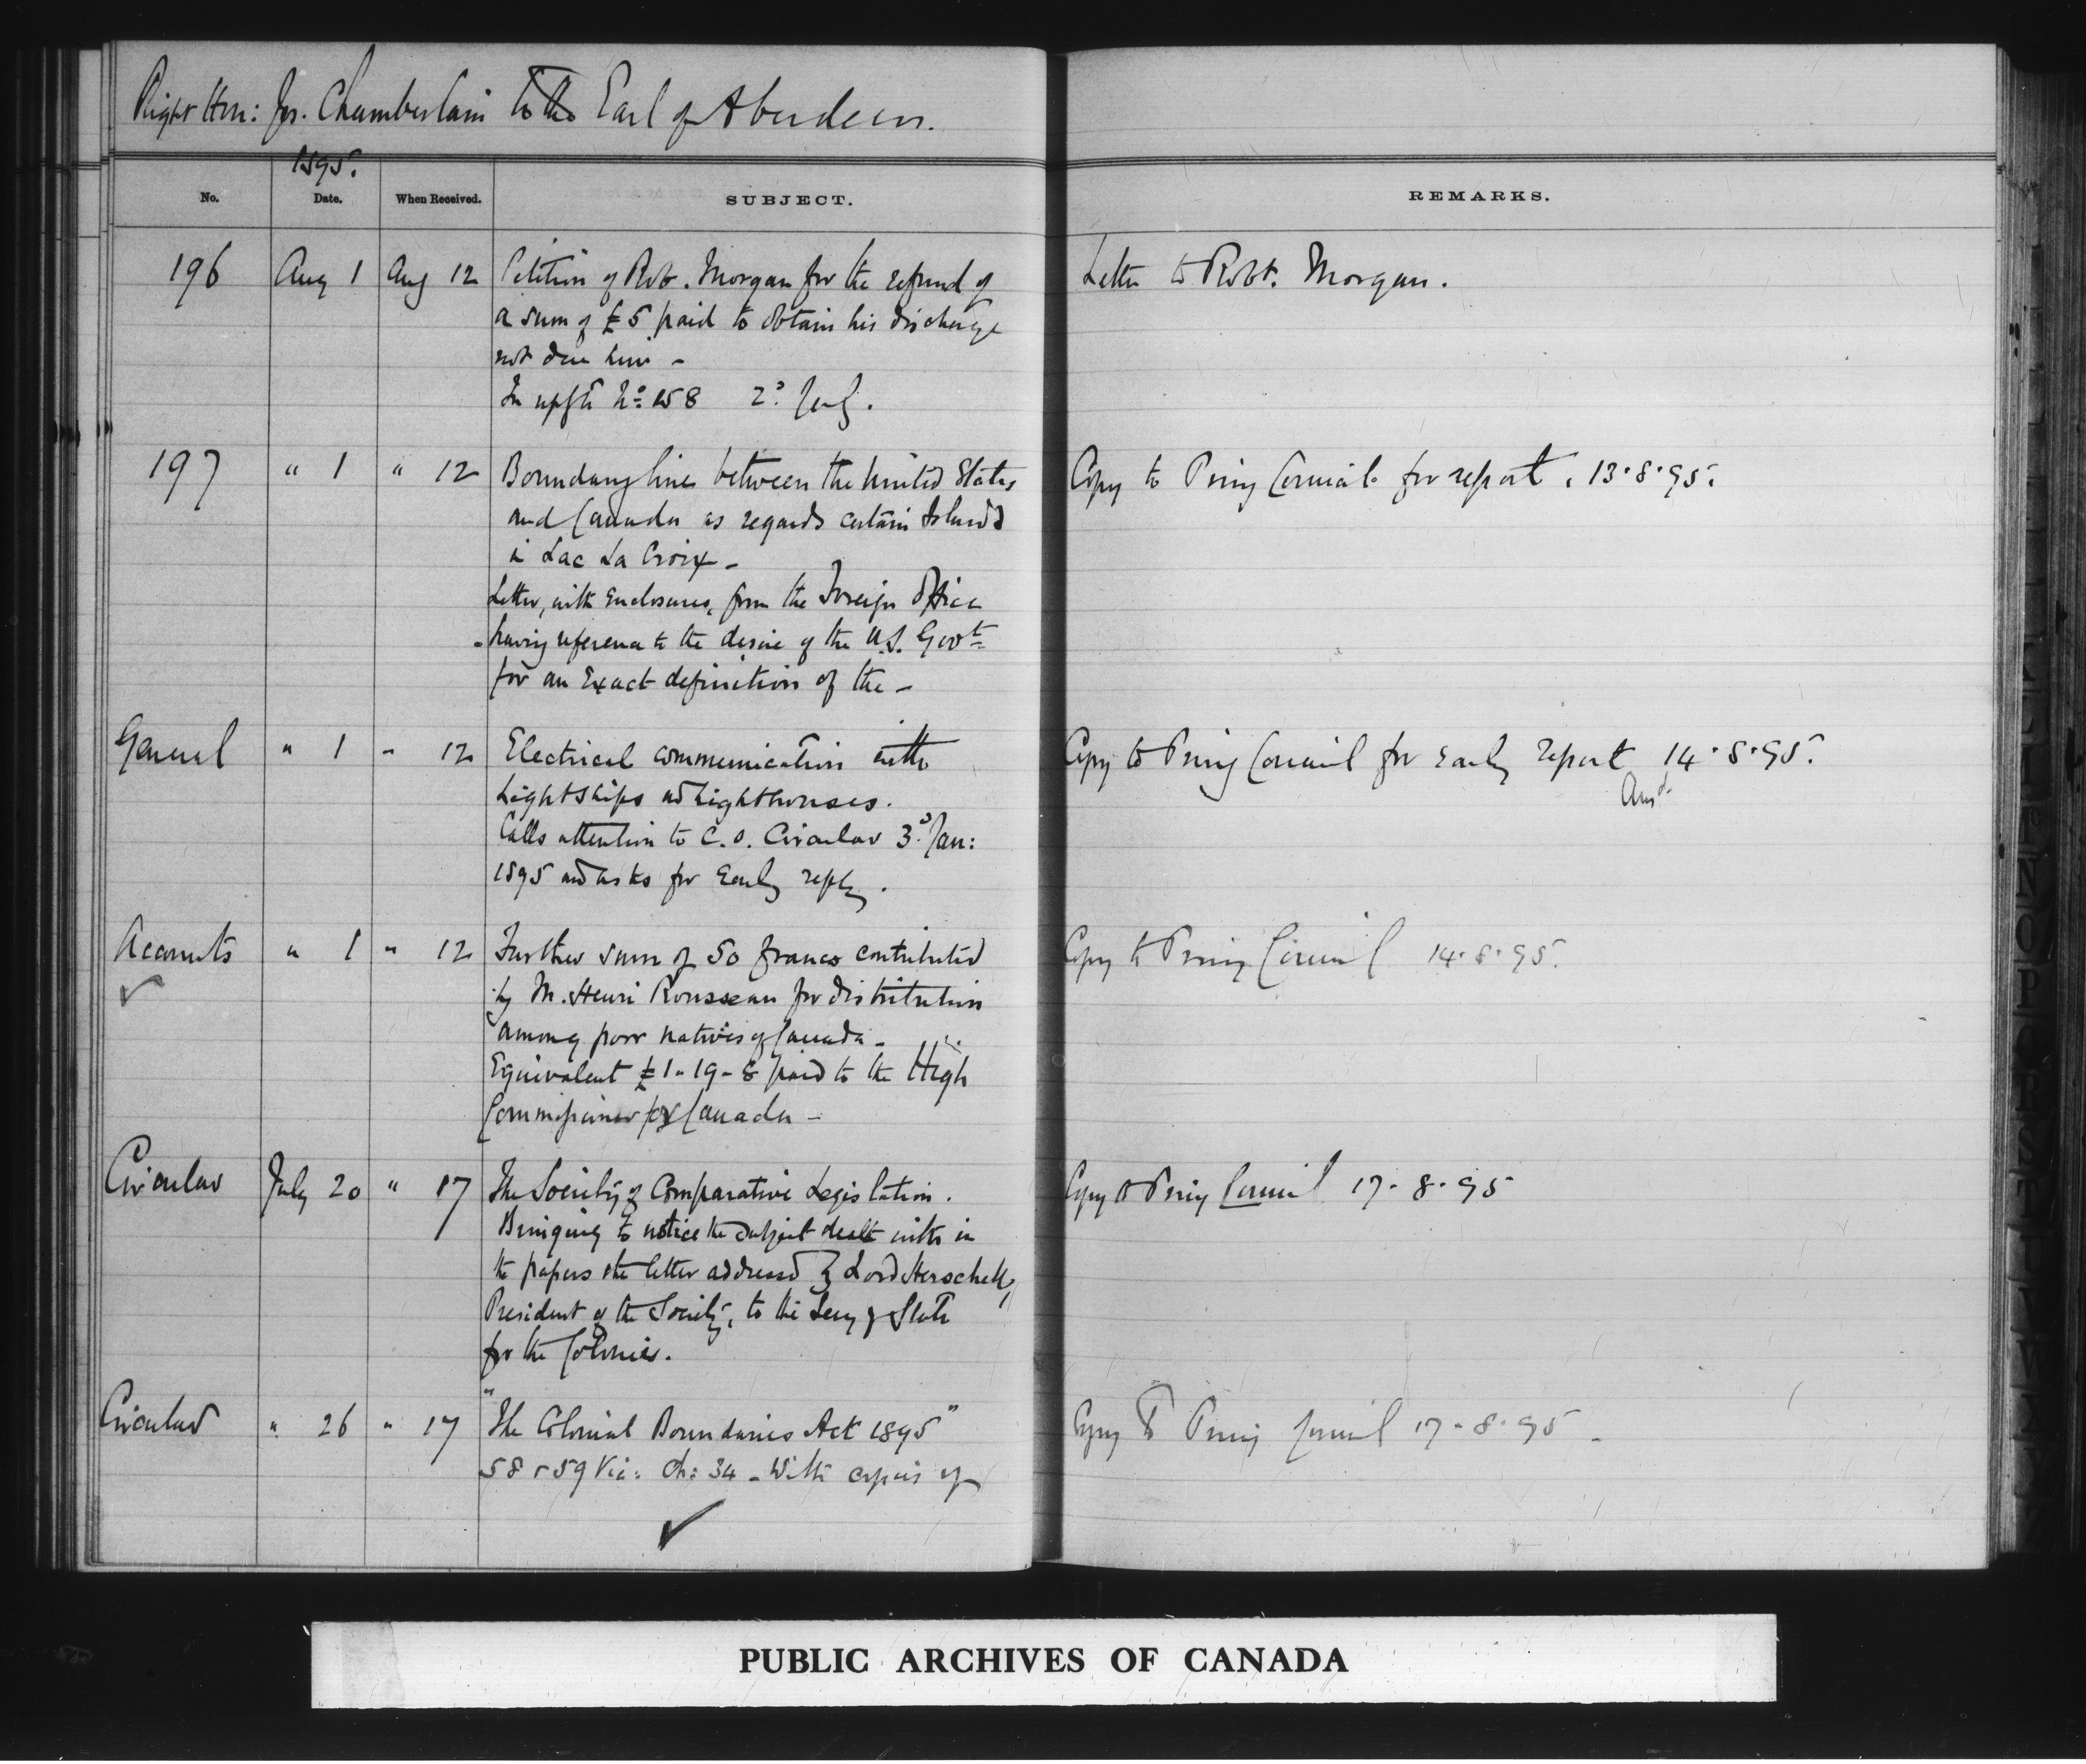 Right Hon: Jos. Chamberlain to the Earl of Aberdeen.
1895.
No. Date. When Received. SUBJECT. REMARKS.
196 Aug 1 Aug 12 Petition of Robt. Morgan for the refund of Letter to Robt. Morgan.
a sum of £5 paid to obtain his discharge
not due him -
In No: 158 2d July.
197 " 1 " 12 Boundary line between the United States Copy to Privy Council for report. 13.8.95.
and Canada as regards certain Islands
in Lac La Croix -
Letter, with Enclosures, from the Foreign Office
having reference to the desire of the U.S. Govt
for an Exact definition of the -
General " 1 " 12 Electrical communication with Copy to Privy Council for early report 14.8.95.
Lightships and Lighthouses. Ansd.
Calls attention to C.O. Circular 3d Jan:
1895 and asks for Early reply.
Accounts " 1 " 12 Further sum of 50 francs contributed Copy to Privy Council 14.8.95.
by M. Henri Rousseau for distribution
among poor natives of Canada -
Equivalent £1-19-8 paid to the High
Commissioner for Canada -
Circular July 20 " 17 The Society of Comparative Legislation. Copy to Privy Council 17-8-95
Bringing to notice the subject dealt with in
the papers & the letter addressed by Lord Herschell,
President of the Society, to the Secy of State
for the Colonies.
Circular " 26 " 17 "The Colonial Boundaries Act 1895" Copy to Privy Council 17-8-95 -
58 & 59 Vic: Ch: 34 - With copies of
PUBLIC ARCHIVES OF CANADA